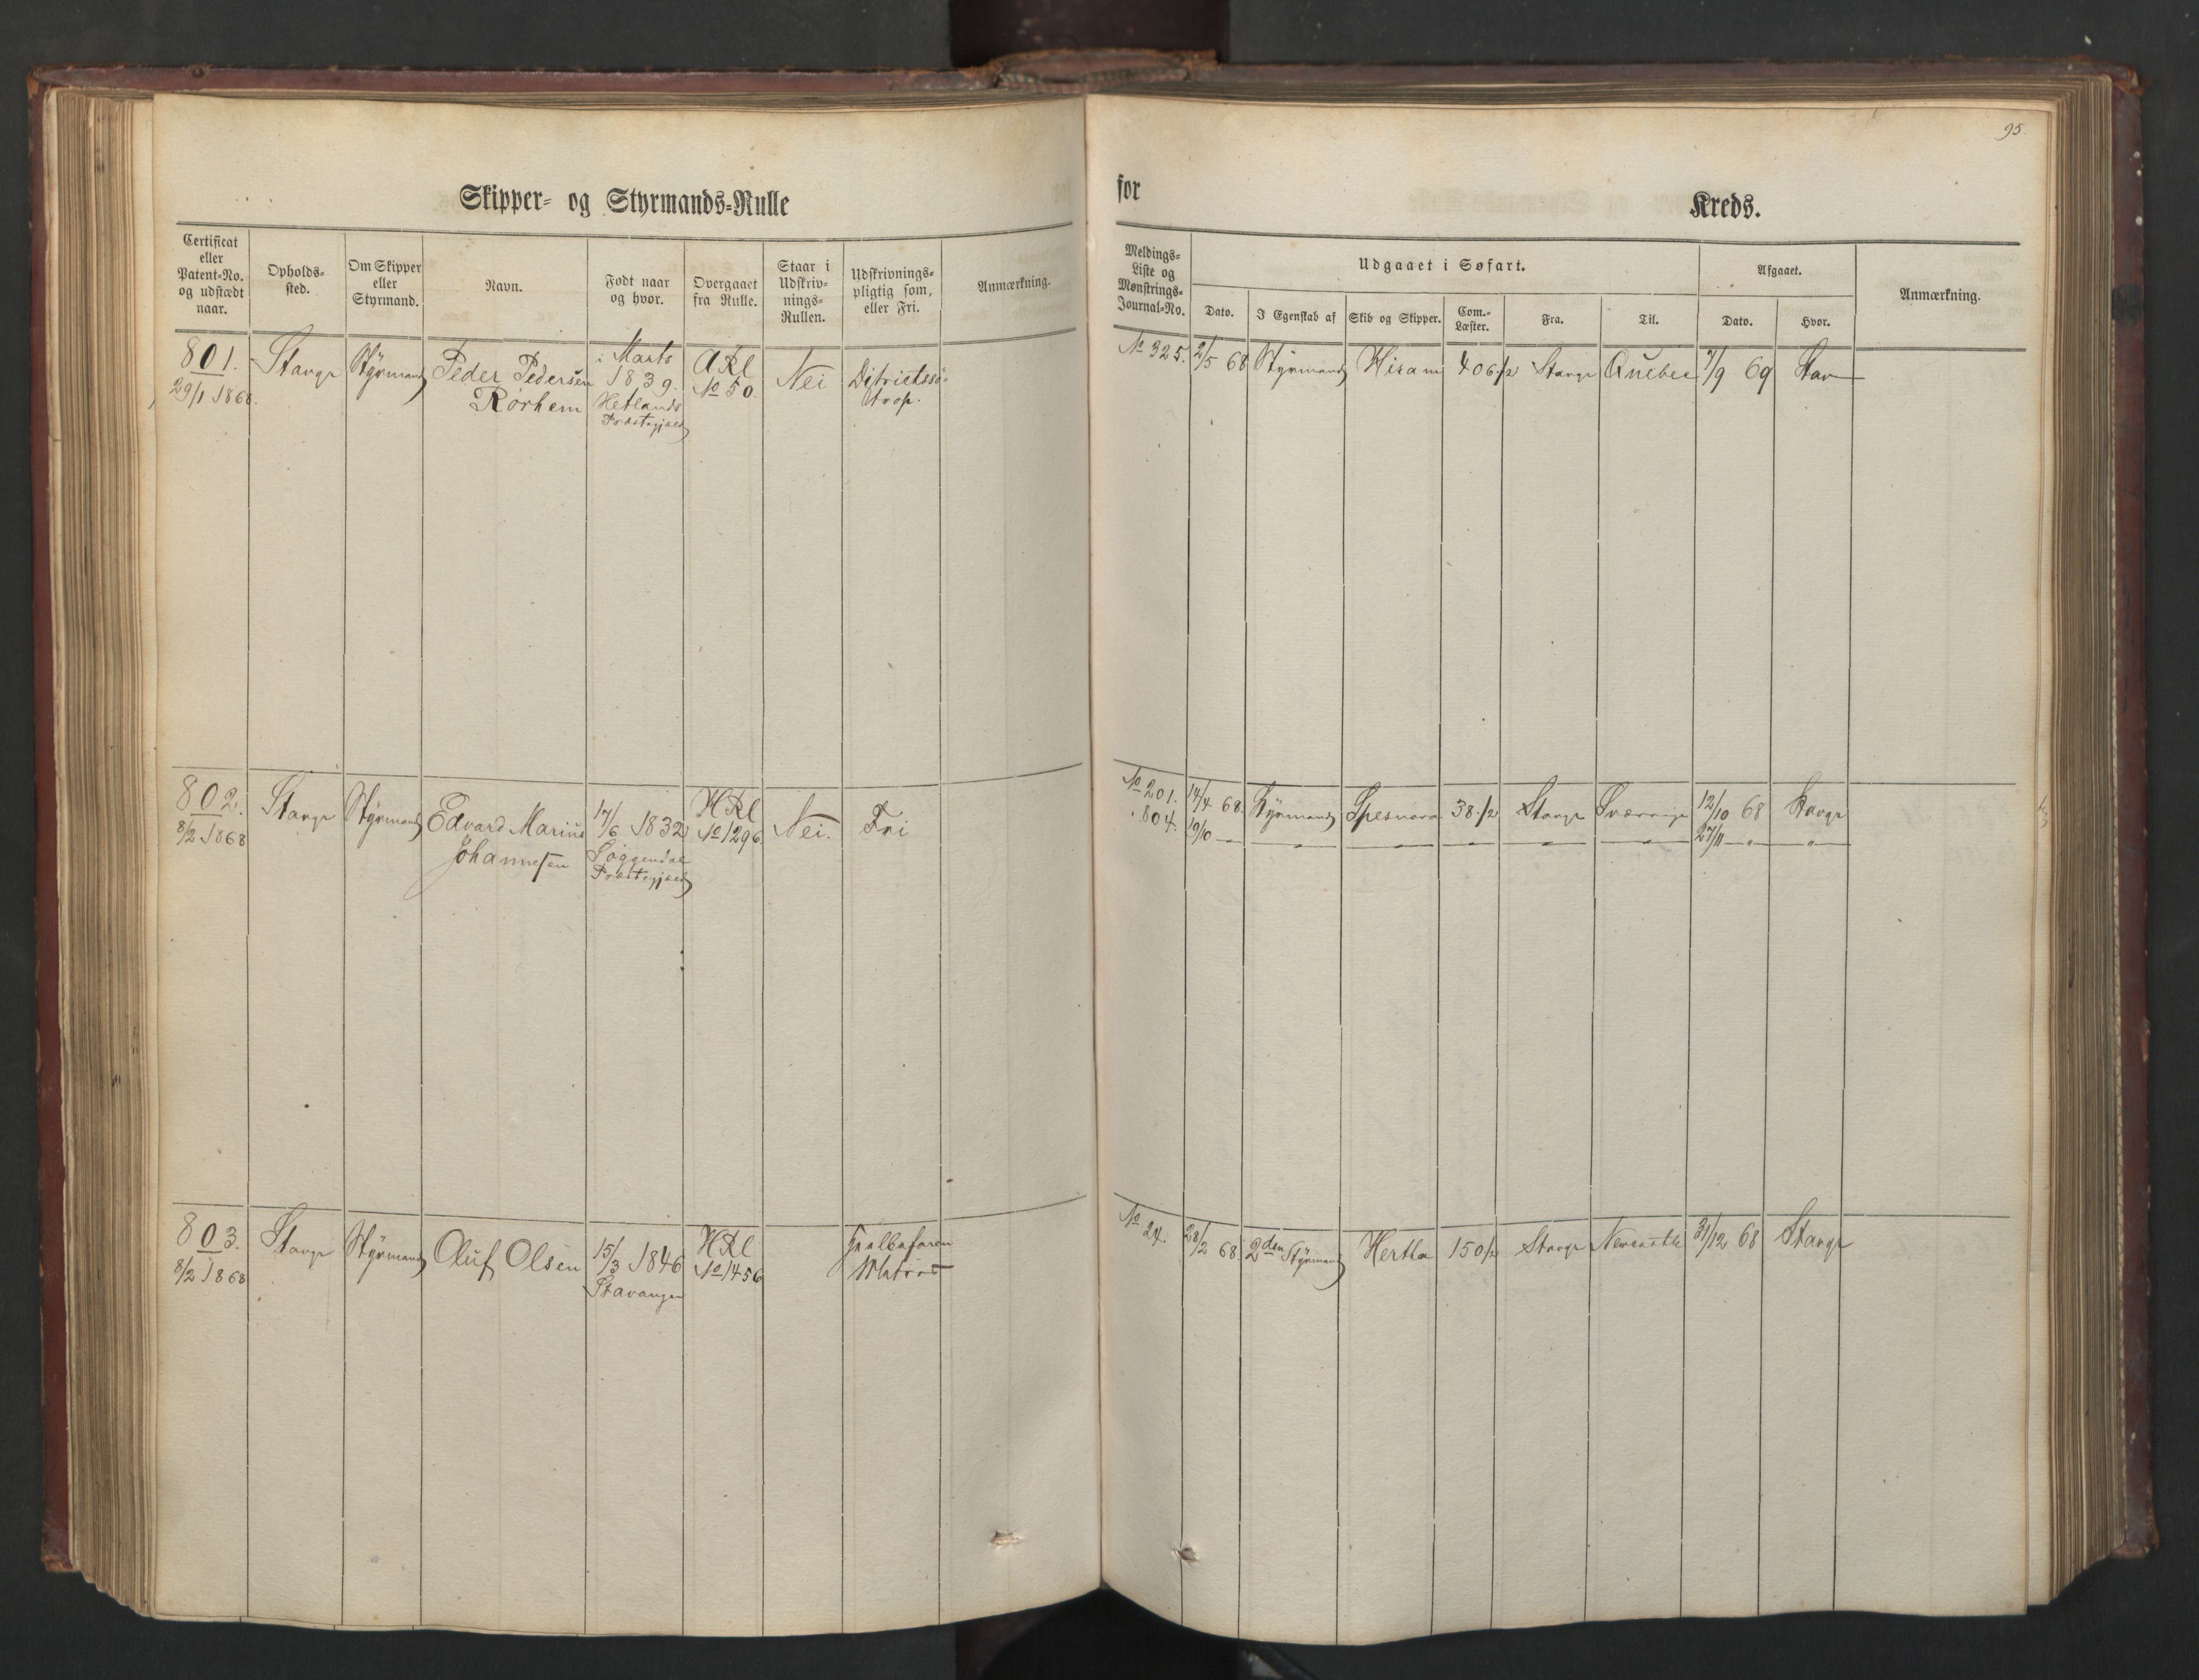 95.
Skipper- og Styrmands-Rulle
for
Kreds.
Certificat eller Patent-No. og udstædt naar.
Opholds-sted.
Om Skipper eller Styrmand.
Navn.
Født naar og hvor.
Overgaaet fra Rulle.
Staar i Udskriv-nings-Rullen.
Udskrivnings-pligtig som, eller Fri.
Anmærkning.
Meldings-Liste og Mønstrings-Journal-No.
Udgaaet i Søfart.
Afgaaet.
Dato.
I Egenskab af
Skib og Skipper.
Com.-Læster.
Fra.
Til.
Dato.
Hvor.
Anmærkning.
801.
29/1 1868.
Stavgr
Styrmand
Peder Pedersen
Rörhem
i Marts
1839.
Hetlands
Præstegjæld
A Rl
No 50.
Nei
Ditrictssö-
trop.
No 325.
2/5 68
Styrmand
Hiram
406 1/2
Stavgr
Quebec
7/9 69
Stav
802.
8/2 1868
Stavgr
Styrmand
Edvard Marius
Johannesen
17/6 1832
Soggendal
Præstegjæld
H Rl
No 1296
Nei.
Fri
No 201.
14/4 68
Styrmand
Spesnova
38 1/2
Stavgr
Sverrige
12/10 68
Stavgr
" 804.
19/10 —
— " —
— " —
— " —
— " —
— " —
27/11 — " —
— " —
803.
8/2 1868
Stavgr
Styrmand
Oluf Olsen
15/3 1846
Stavanger
H Rl
No 1456
Hualbefaren
Matros
No 24.
28/2 68
2den Styrmand
Hertha
150 1/2
Stavgr
Newcastle
31/12 68
Stavgr